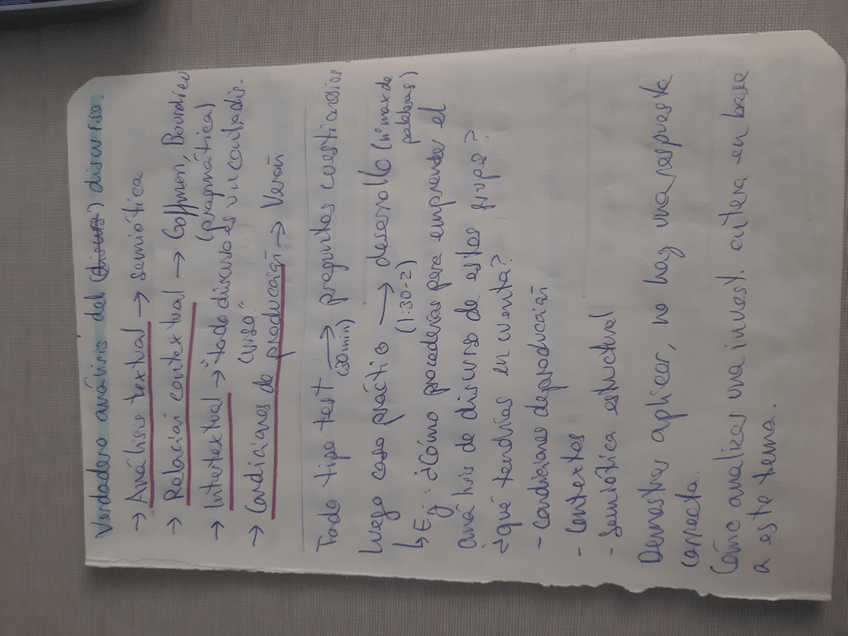 Verdadero análisis del (discurso) discurso.
→ Análisis textual → semiótica
→ Relación contextual → Goffman, Bourdieu
(pragmática)
→ Intertextual → "todo discurso es un contradis-
curso".
→ Condiciones de producción → Verón
Todo tipo test → preguntas cuestionarios
(30 min)
Luego caso práctico → desarrollo (nº max de
palabras)
(1:30-2)
↳ Ej: ¿Cómo procederías para emprender el
análisis de discurso de estos grupos?
¿qué tendrías en cuenta?
- condiciones de producción
- Contextos
- Semiótica estructural
Demostrar aplicar, no hay una respuesta
correcta.
Cómo analizas una invest. entera en base
a este tema.